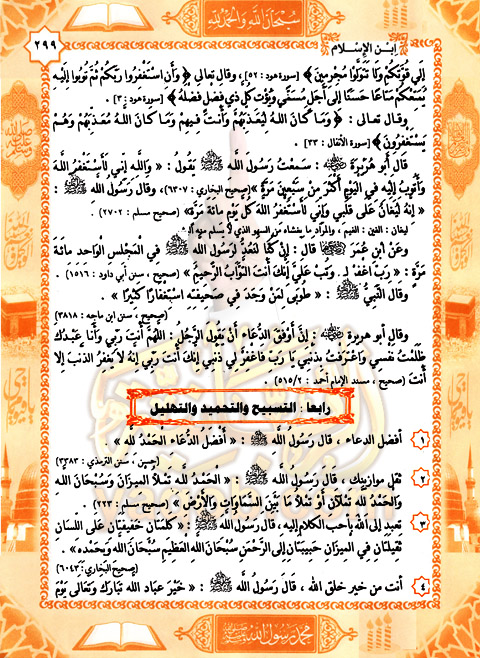 سبحان الله والحمد لله
٢٩٩
إبن الإسلام
إِلَى قُوَّتِكُمْ وَلَا تَتَوَلَّوْا مُجْرِمِينَ ﴾ [سورة هود : ٥٢] ، وقال تعالى ﴿ وَأَنِ اسْتَغْفِرُوا رَبَّكُمْ ثُمَّ تُوبُوا إِلَيْهِ
يُمَتِّعْكُم مَّتَاعًا حَسَنًا إِلَى أَجَلٍ مُّسَمًّى وَيُؤْتِ كُلَّ ذِي فَضْلٍ فَضْلَهُ ﴾ [سورة هود : ٣] .
وقال تعالى : ﴿ وَمَا كَانَ اللَّهُ لِيُعَذِّبَهُمْ وَأَنتَ فِيهِمْ وَمَا كَانَ اللَّهُ مُعَذِّبَهُمْ وَهُمْ
يَسْتَغْفِرُونَ ﴾ [سورة الأنفال : ٣٣] .
قال أبو هُرَيْرَةَ ﵁ : سَمِعْتُ رَسُولَ اللهِ ﷺ يَقُولُ : « وَاللهِ إِنِّي لَأَسْتَغْفِرُ اللهَ
وَأَتُوبُ إِلَيْهِ فِي الْيَوْمِ أَكْثَرَ مِنْ سَبْعِينَ مَرَّةً » (صحيح البخاري : ٦٣٠٧) ، وقال رَسُولَ اللهِ ﷺ :
« إِنَّهُ لَيُغَانُ عَلَى قَلْبِي وَإِنِّي لَأَسْتَغْفِرُ اللهَ كُلَّ يَوْمٍ مِائَةَ مَرَّةٍ » (صحيح مسلم : ٢٧٠٢) .
ليغان : الغين ، الغيم ، والمراد ما يغشاه من السهو الذي لا يسلم منه
وعَنْ ابْنِ عُمَرَ ﵄ قال : إِنْ كُنَّا لَنَعُدُّ لِرَسُولِ اللهِ ﷺ فِي الْمَجْلِسِ الْوَاحِدِ مِائَةَ
مَرَّةٍ : « رَبِّ اغْفِرْ لِي وَتُبْ عَلَيَّ إِنَّكَ أَنْتَ التَّوَّابُ الرَّحِيمُ » (صحيح ، سنن أبي داود : ١٥١٦) .
وقال النَّبِيُّ ﷺ : « طُوبَى لِمَنْ وَجَدَ فِي صَحِيفَتِهِ اسْتِغْفَارًا كَثِيرًا » . (صحيح ، سنن ابن ماجه : ٣٨١٨)
وقال أبو هريرة ﵁ : إِنَّ أَوْفَقَ الدُّعَاءِ أَنْ يَقُولَ الرَّجُلُ : اللهُمَّ أَنْتَ رَبِّي وَأَنَا عَبْدُكَ
ظَلَمْتُ نَفْسِي وَاعْتَرَفْتُ بِذَنْبِي يَا رَبِّ فَاغْفِرْ لِي ذَنْبِي إِنَّكَ أَنْتَ رَبِّي إِنَّهُ لَا يَغْفِرُ الذَّنْبَ إِلَّا
أَنْتَ (صحيح ، مسند الإمام أحمد : ٥١٥/٢) .
رابعا : التسبيح والتحميد والتهليل
١ أفضل الدعاء ، قال رَسُولُ اللهِ ﷺ : « أَفْضَلُ الدُّعَاءِ الْحَمْدُ لله » . (حسن ، سنن الترمذي : ٣٣٨٣)
٢ ثقل موازينك ، قَالَ رَسُولُ اللهِ ﷺ : « الْحَمْدُ لله تَمْلَأُ الْمِيزَانَ وَسُبْحَانَ اللهِ
وَالْحَمْدُ للهِ تَمْلَآنِ أَوْ تَمْلَأُ مَا بَيْنَ السَّمَاوَاتِ وَالْأَرْضِ » (صحيح مسلم : ٢٢٣) .
٣ تعبد إلى الله بأحب الكلام إليه ، قال رَسُولُ اللهِ ﷺ : « كَلِمَتَانِ خَفِيفَتَانِ عَلَى اللِّسَانِ
ثَقِيلَتَانِ فِي الْمِيزَانِ حَبِيبَتَانِ إِلَى الرَّحْمَنِ سُبْحَانَ اللهِ الْعَظِيمِ سُبْحَانَ اللهِ وَبِحَمْدِهِ » .
(صحيح البخاري : ٦٠٤٣)
٤ أنت من خير خلق الله ، قَالَ رَسُولُ اللهِ ﷺ : « خَيْرَ عِبَادِ اللهِ تَبَارَكَ وَتَعَالَى يَوْمَ
محمد رسول الله